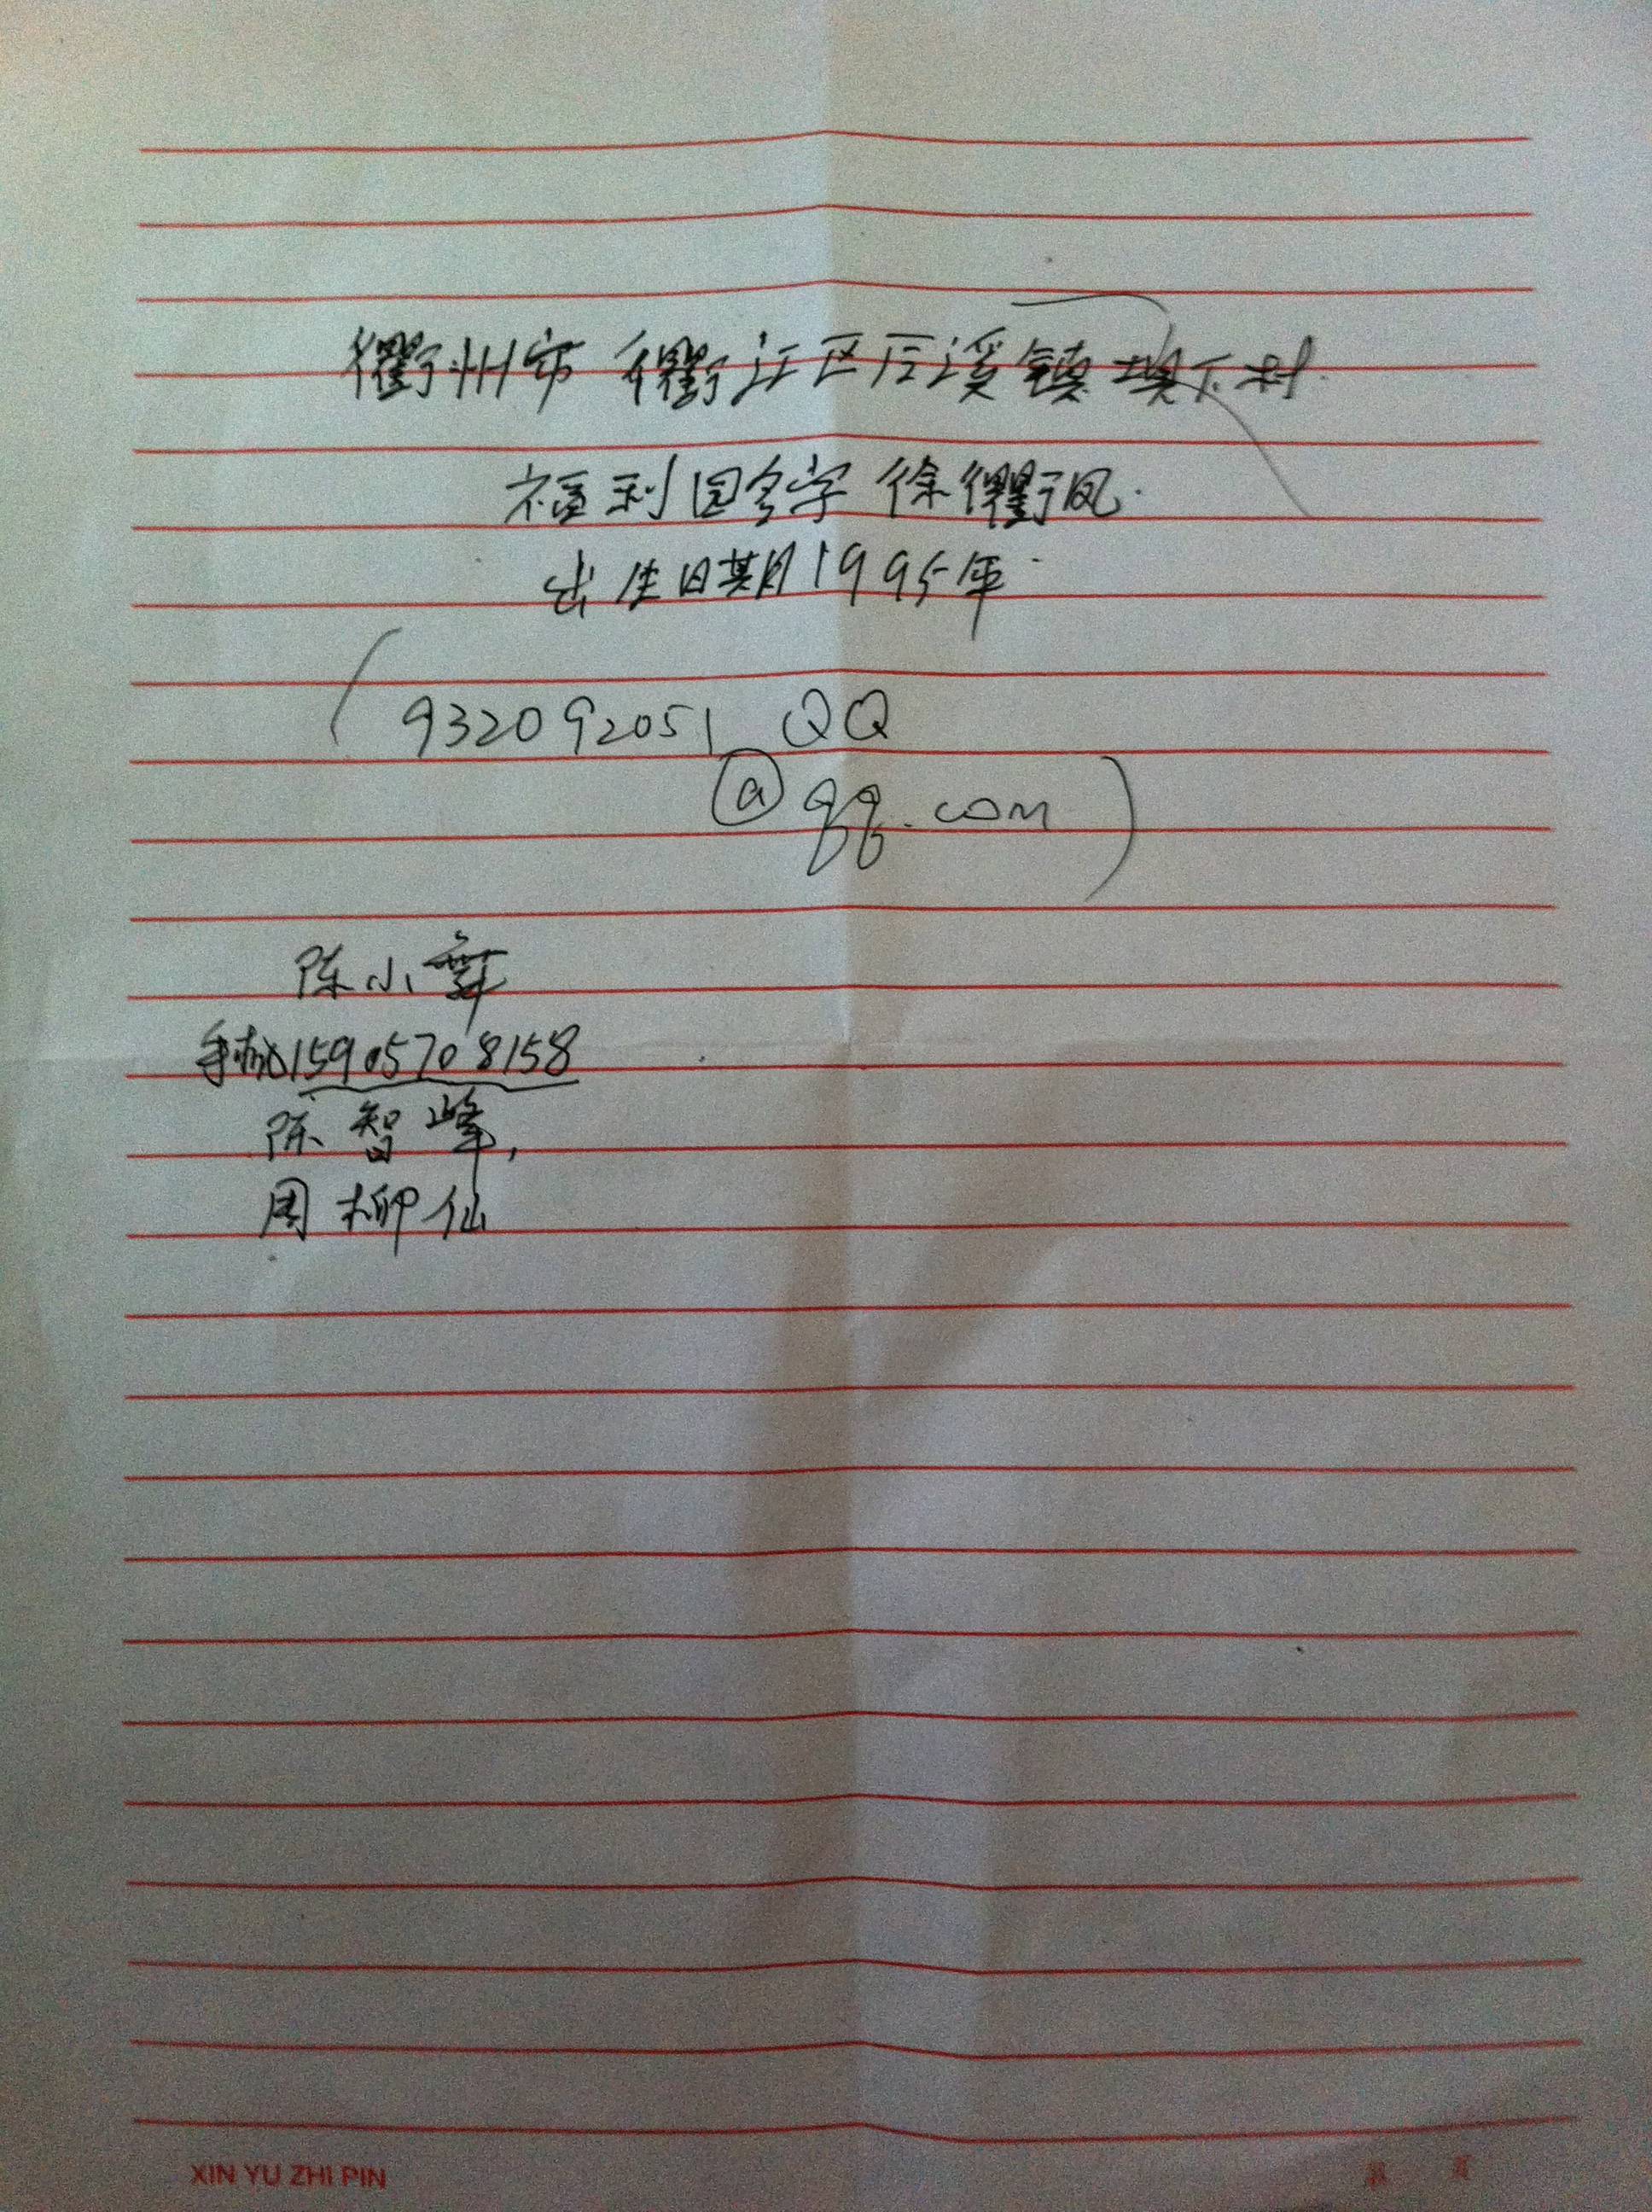 衢州市衢江区后溪镇埧下村.
福利园名字徐衢凤.
出生日期1995年.
(932092051 QQ
@qq.com)
陈小
手机15905708158
陈智峰,
周柳仙
XIN YU ZHI PIN
第 页